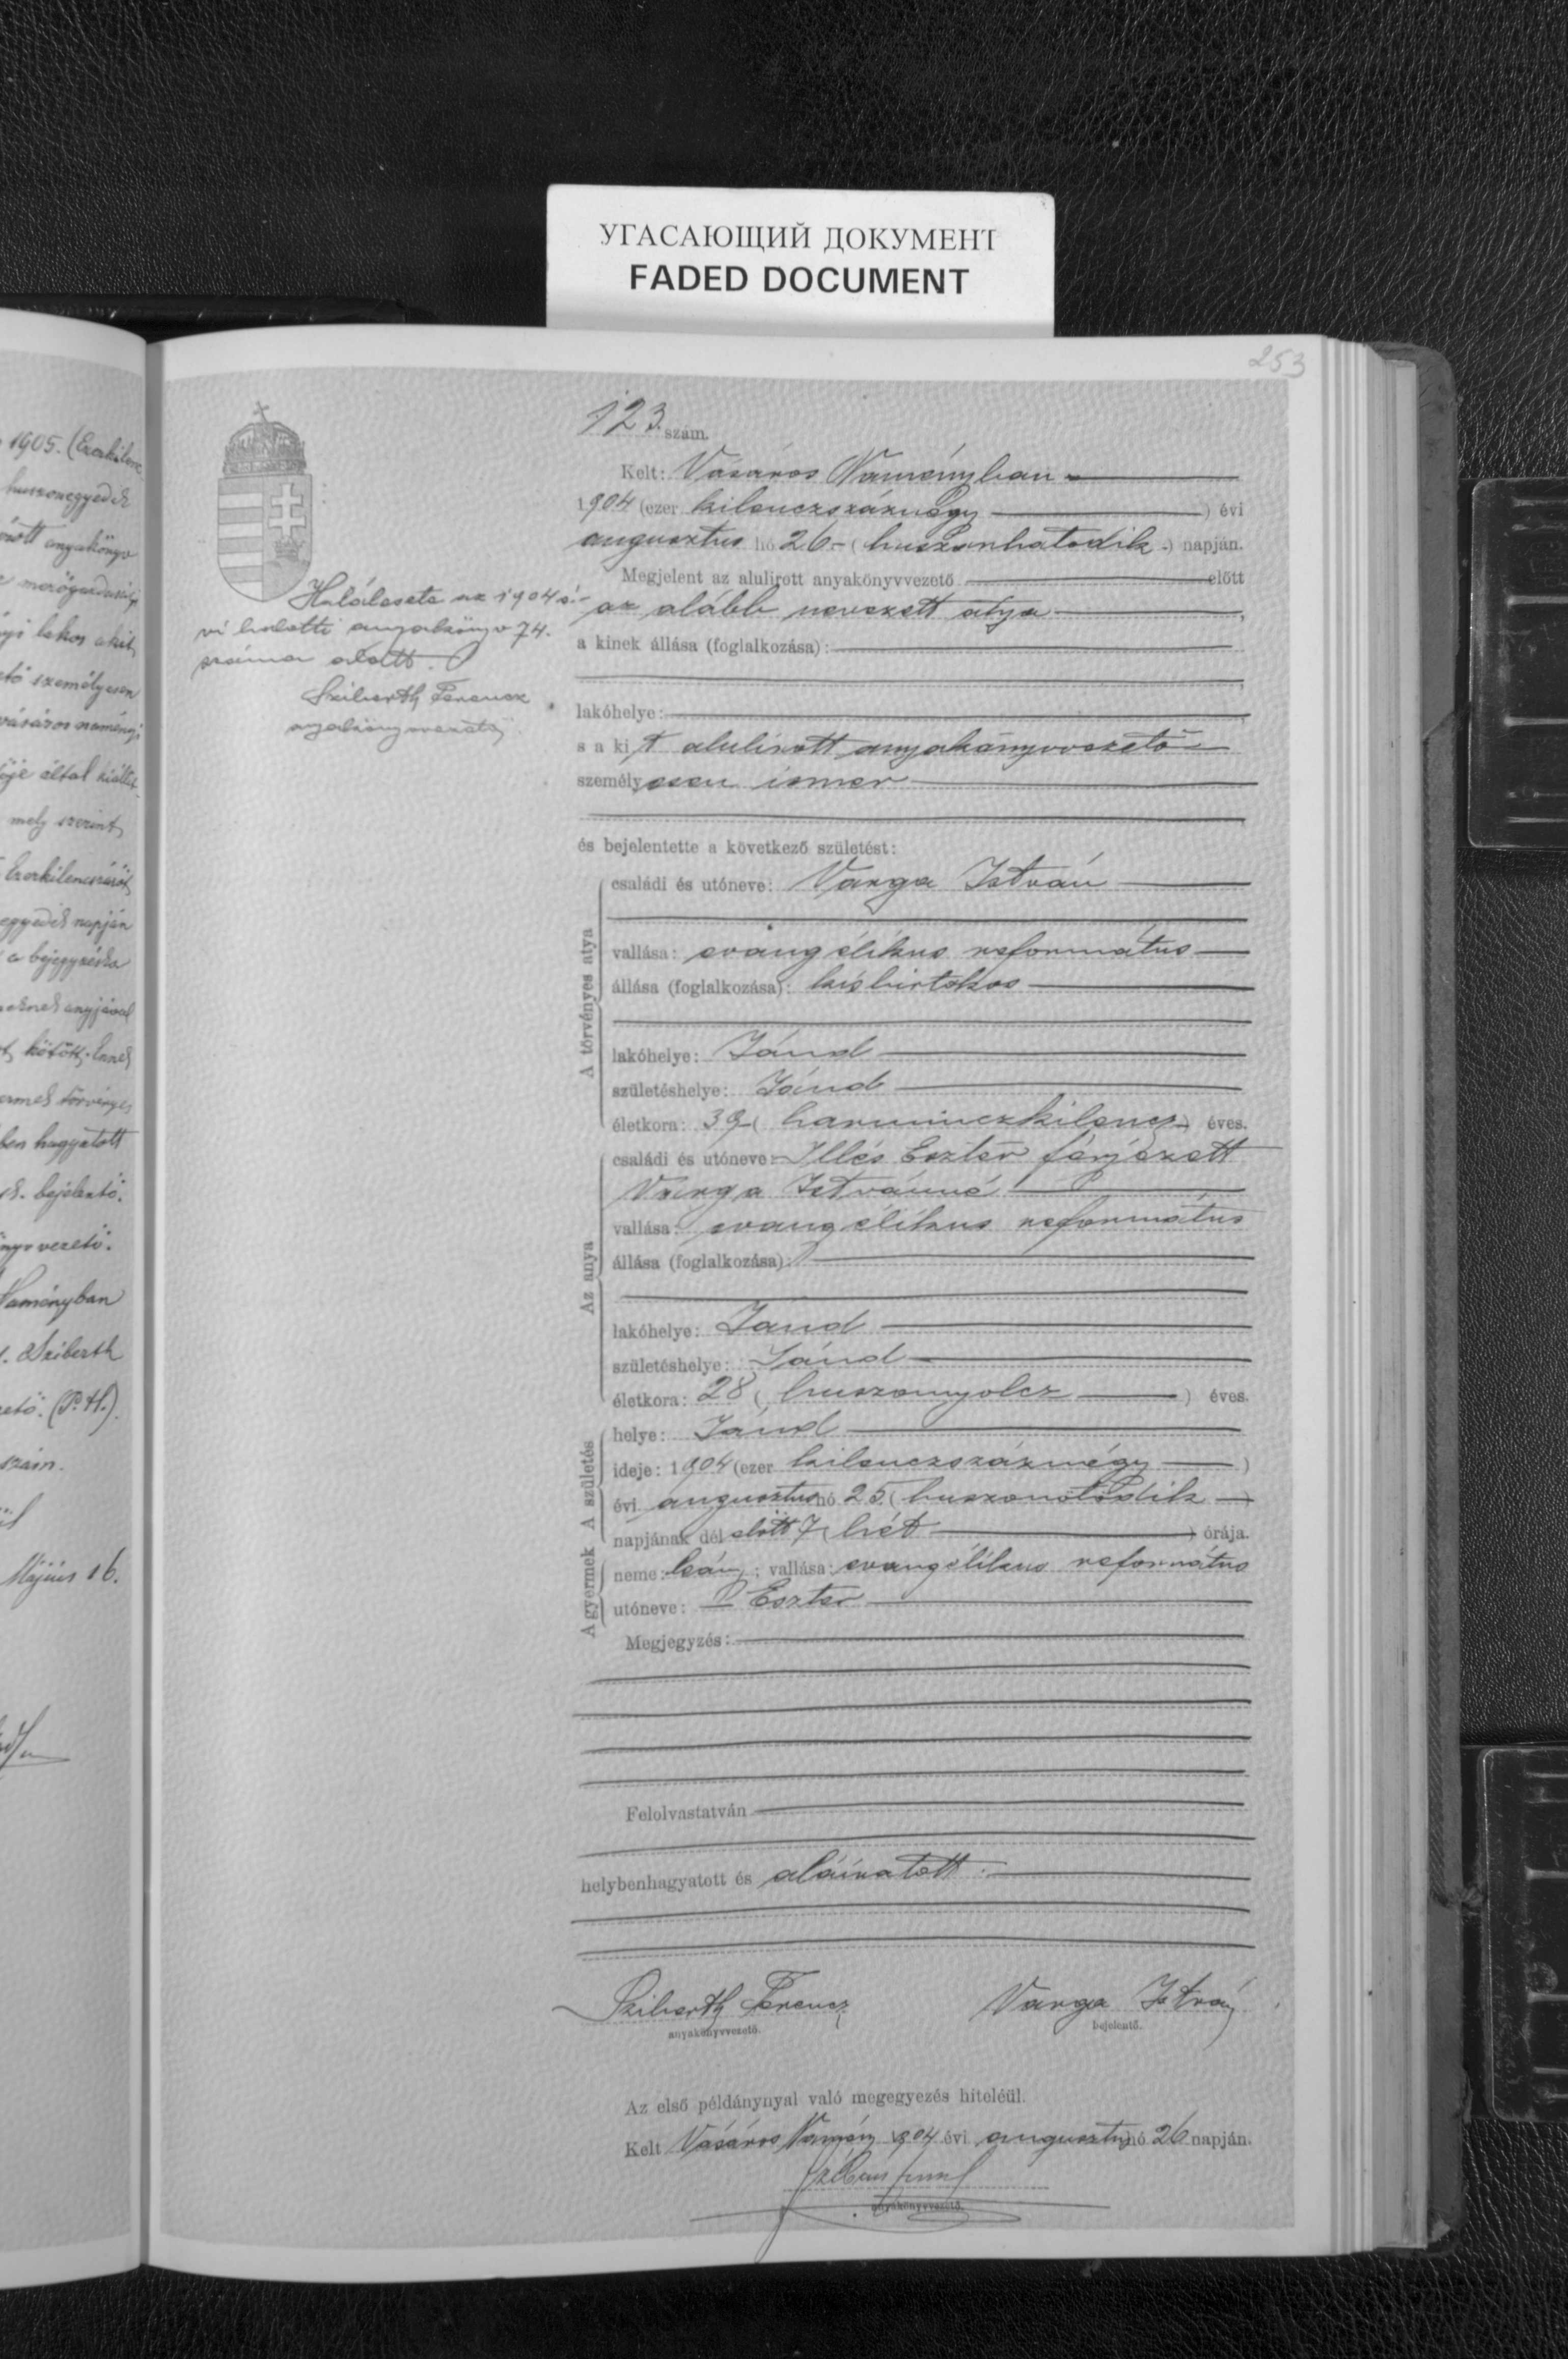 УГАСАЮЩИЙ ДОКУМЕНТ
FADED DOCUMENT
253
1905. (Ezerkilenc
huszonegyedik
anyakönyv
lakos akit
személyesen
vásáros naményi
által kiállít
mely szerint
Ezerkilencszázöt
egyedik napján
a bejegyzésba
anyjával
kötött. Ennek
törvényes
ben hagyatott
bejelentő.
vezető.
Naményban
Sziberth
(P. H.)
szám.
Május 16.
123. szám.
Kelt: Vásáros Naményban
1904 (ezer kilenczszáznégy ) évi
augusztus hó 26 - ( huszonhatodik ) napján.
Megjelent az alulirott anyakönyvvezető előtt
az alább nevezett atya ,
a kinek állása (foglalkozása):
lakóhelye:
s a kit alulírott anyakönyvvezető
személyesen ismer
és bejelentette a következő születést:
A törvényes atya
családi és utóneve: Varga István
vallása: evangélikus református
állása (foglalkozása): kisbirtokos
lakóhelye: Jánd
születéshelye: Jánd
életkora: 39 ( harminczkilencz ) éves.
Az anya
családi és utóneve: Illés Eszter férjezett
Varga Istvánné
vallása: evangélikus református
állása (foglalkozása):
lakóhelye: Jánd
születéshelye: Jánd
életkora: 28 ( huszonnyolcz ) éves.
A születés
helye: Jánd
ideje: 1904 (ezer kilenczszáznégy )
évi augusztus hó 25. ( huszonötödik )
napjának dél előtt 7 ( hét ) órája.
A gyermek
neme: leány ; vallása: evangélikus református
utóneve: Eszter
Megjegyzés:
Felolvastatván
helybenhagyatott és aláíratott:
Sziberth Ferencz
anyakönyvvezető.
Varga István
bejelentő.
Az első példánynyal való megegyezés hiteléül.
Kelt Vásáros Namény 1904 évi augusztus hó 26 napján.
anyakönyvvezető.
Halálesete az 1904 é-
vi halotti anyakönyv 74.
száma alatt.
Sziberth Ferencz
anyakönyvvezető